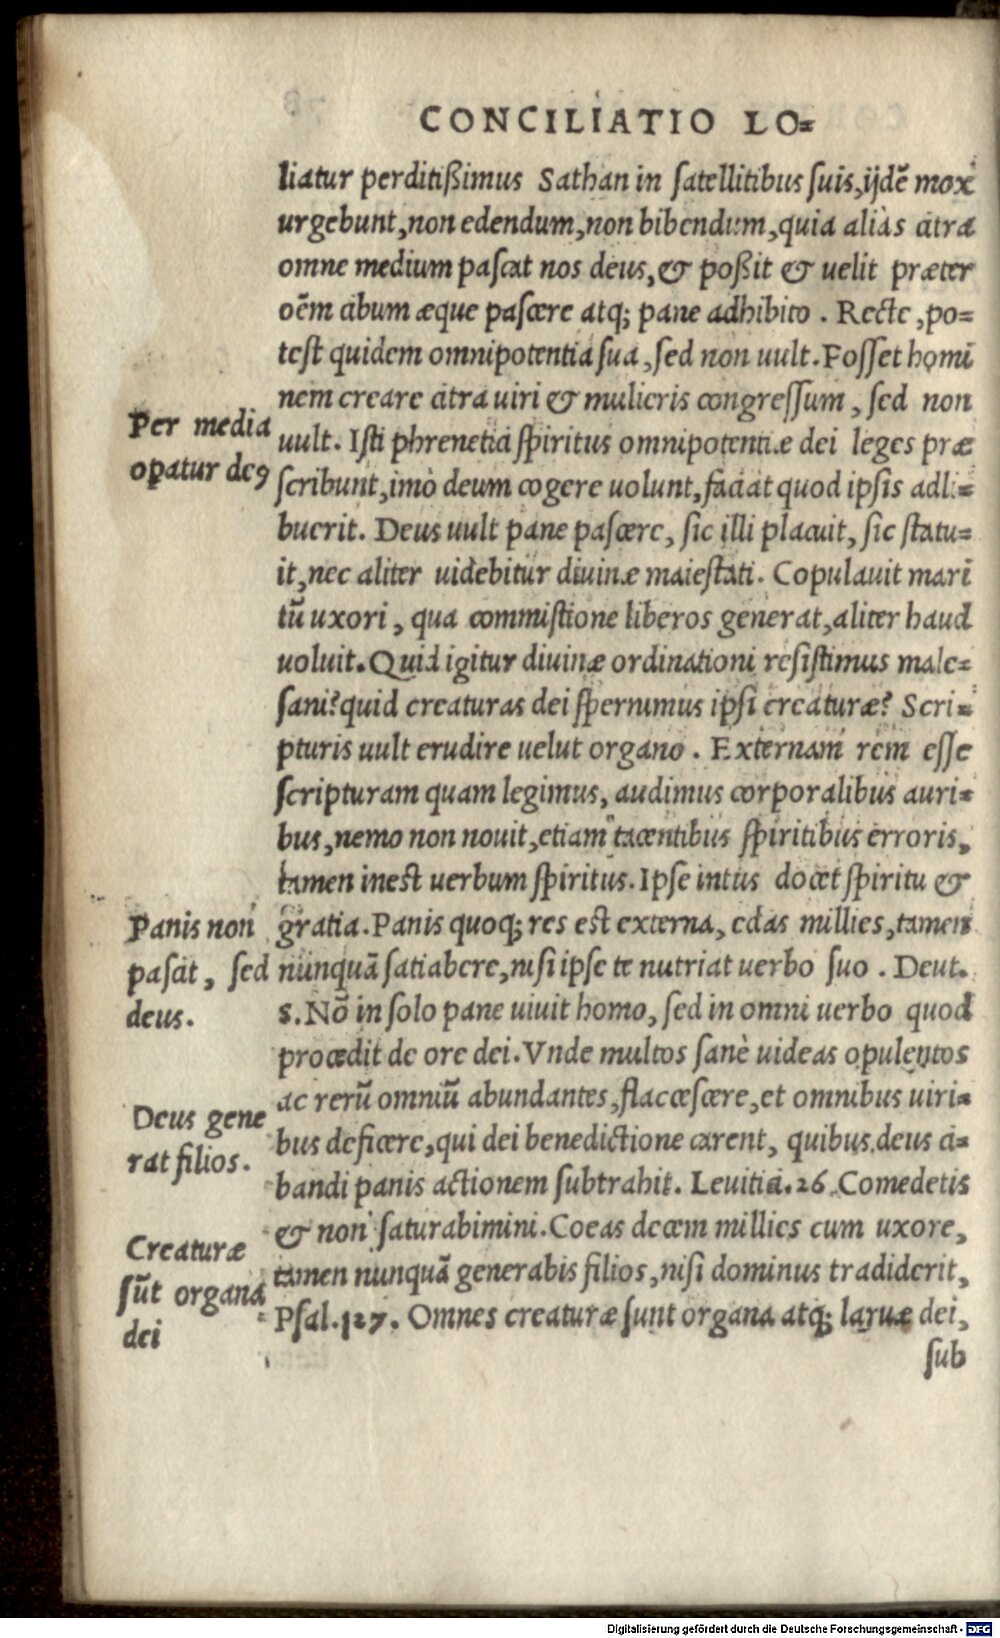 CONCILIATIO LO=
liatur perditißimus Sathan in ſatellitibus ſuis, ijdē mox
urgebunt, non edendum, non bibendum, quia aliàs citra
omne medium paſcat nos deus, & poßit & uelit præter
oēm cibum æque paſcere atq; pane adhibito. Recte, po=
teſt quidem omnipotentia ſua, ſed non uult. Poſſet homi
nem creare citra uiri & mulieris congreſſum, ſed non
Per media
uult. Iſti phrenetici ſpiritus omnipotentiæ dei leges præ
opatur de9
ſcribunt, imò deum cogere uolunt, faciat quod ipſis adli=
buerit. Deus uult pane paſcere, ſic illi placuit, ſic ſtatu=
it, nec aliter uidebitur diuinæ maieſtati. Copulauit mari
tū uxori, qua commiſtione liberos generat, aliter haud
uoluit. Quid igitur diuinæ ordinationi reſiſtimus male=
ſani? quid creaturas dei ſpernimus ipſi creaturæ? Scri=
pturis uult erudire uelut organo. Externam rem eſſe
ſcripturam quam legimus, audimus corporalibus auri=
bus, nemo non nouit, etiam tacentibus ſpiritibus erroris,
tamen ineſt uerbum ſpiritus. Ipſe intus docet ſpiritu &
Panis non
gratia. Panis quoq; res eſt externa, edas millies, tamen
paſcit, ſed
nunquā ſatiabere, niſi ipſe te nutriat uerbo ſuo. Deut.
deus.
8. Nō in ſolo pane uiuit homo, ſed in omni uerbo quod
procedit de ore dei. Vnde multos ſanè uideas opulentos
ac rerū omniū abundantes, flacceſcere, et omnibus uiri=
Deus gene
bus deficere, qui dei benedictione carent, quibus deus ci=
rat filios.
bandi panis actionem ſubtrahit. Leuitici. 26. Comedetis
& non ſaturabimini. Coeas decem millies cum uxore,
Creaturæ
tamen nunquā generabis filios, niſi dominus tradiderit,
ſūt organa
Pſal. 127. Omnes creaturæ ſunt organa atq; laruæ dei,
dei
ſub
Digitalisierung gefördert durch die Deutsche Forschungsgemeinschaft - DFG